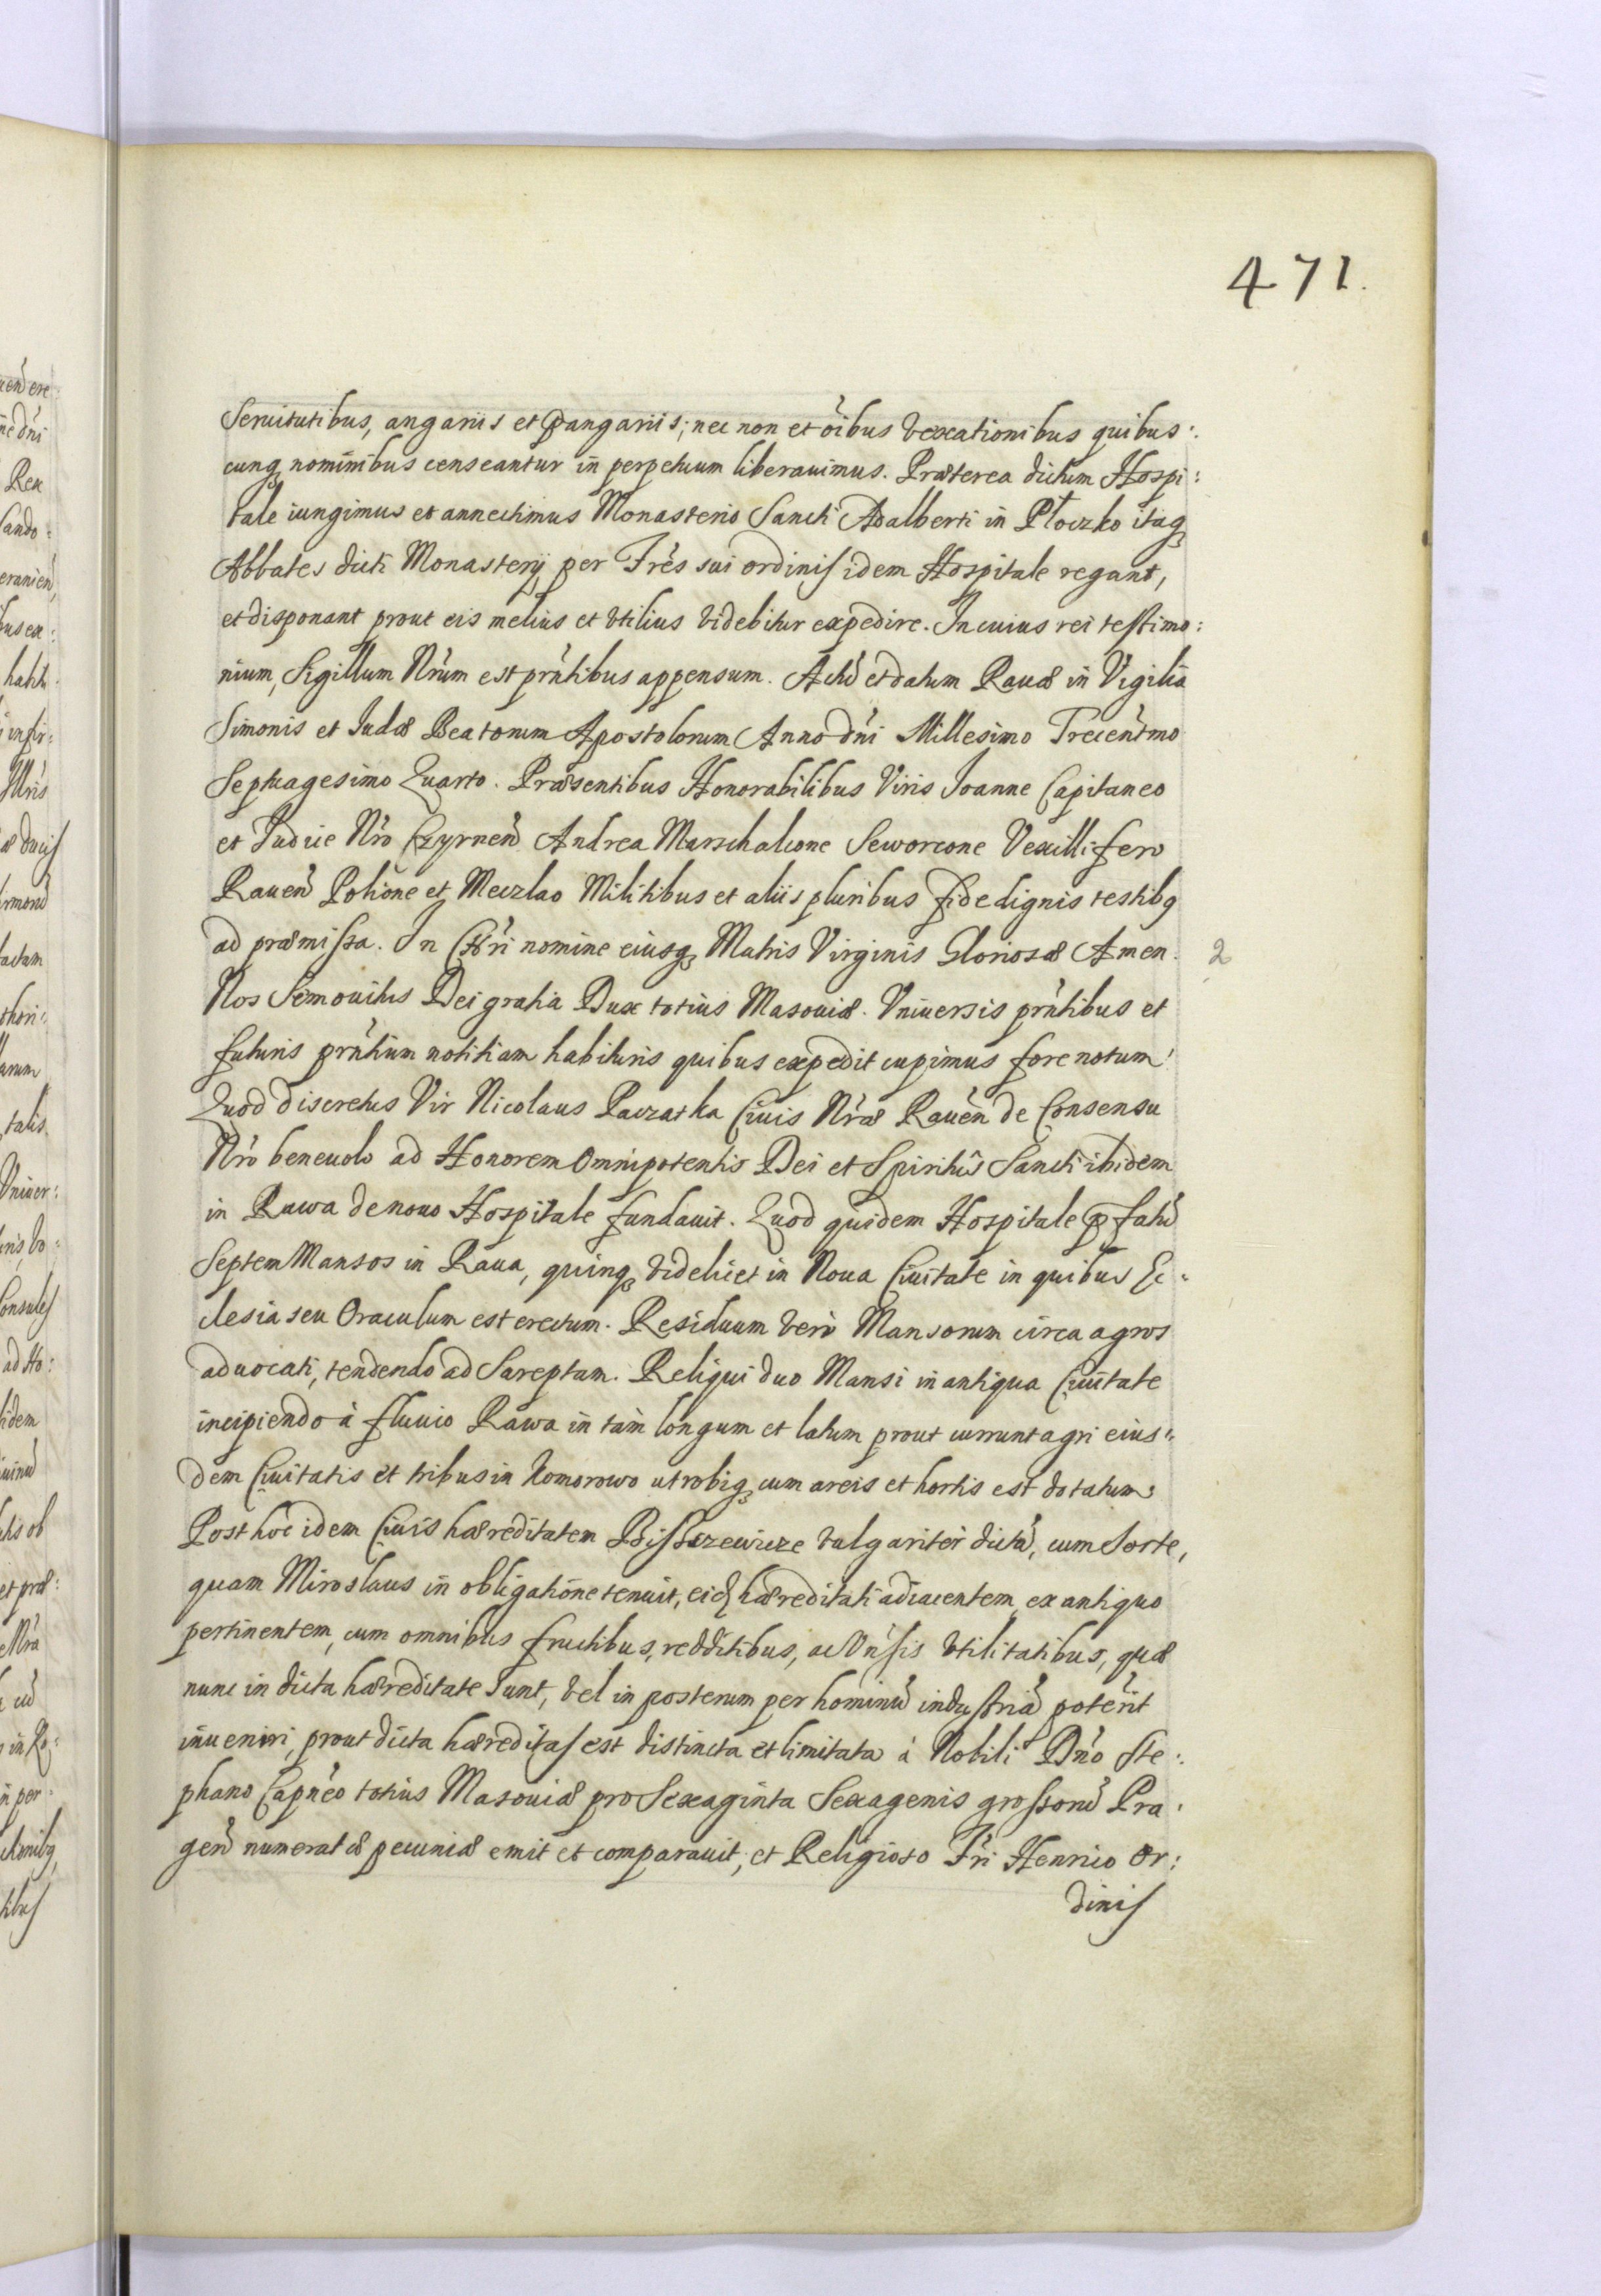 471.
Seruitutibus, angariis et p̱angariis; nec non et o͂ibus vexationibus quibus:
cunq̨ nominibus censeantur in perpetuum liberauimus. Præterea dictum Hospi:
tale iungimus et annectimus Monasterio Sancti Adalberti in Płoczko itaq̨
Abbates dicti Monasterij per Fres̃ sui ordinis idem Hospitale regant,
et disponant prout eis melius et vtilius videbitur expedire. In cuius rei testimo:
nium, Sigillum Nr̃um est pr̃ntibus appensum. Actũ et datum Rauæ in Vigilia
Simonis et Iudæ Beatorum Apostolorum Anno dñi Millesimo Trecent̃mo
Septuagesimo Quarto. Præsentibus Honorabilibus Viris Joanne Capitaneo
et Judice Nr̃o Czyrneñ Andrea Marschalcone Seworcone Vexillifero
Raueñ Potione et Meczlao Militibus et aliis pluribus fide dignis testibq
ad præmissa. In Chr̃i nomine eiusq̨ Matris Virginis Gloriosæ Amen. 2
Nos Semouitus Dei gratia Dux totius Masouiæ. Vniuersis pr̃ntibus et
futuris pr̃ntium notitiam habituris quibus expedit cupimus fore notum:
Quod discretus Vir Nicolaus Paczatka Ciuis Nr̃æ Raueñ de Consensu
Nr̃o beneuolo ad Honorem Omnipotentis Dei et Spiritus̃ Sancti ibidem
in Rawa de nouo Hospitale fundauit. Quod quidem Hospitale p̱ fatũ
Septem Mansos in Raua, quinq̨ videlicet in Noua Ciuitate in quibus Ec:
clesia seu Oraculum est erectum. Residuum verò Mansorum circa agros
aduocati, tendendo ad Sareptam. Reliqui duo Mansi in antiqua Ciuitate
incipiendo à fluuio Rawa in tam longum et latum prout currunt agri eius:
dem Ciuitatis et tribus in Komorowo utrobiq̨ cum areis et hortis est dotatum:
Post hoc idem Ciuis hæreditatem vulgariter dictã, cum Sorte,
quam Miroslaus in obligatione tenuit, eid̨ hæreditati adiacentem, ex antiquo
pertinentem, cum omnibus fructibus, redditibus, ac Vñsis vtilitatibus, quæ
nunc in dicta hæreditate sunt, vel in posterum per hominũ industriã poterit
inueniri, prout dicta hæreditas est distincta et limitata à Nobili Dño Ste:
phano Capñeo totius Masouiæ pro Sexaginta Sexagenis grossorũ Pra:
geñ numeratæ pecuniæ emit et comparauit, et Religioso Fr̃i Henrico Or:
dinis